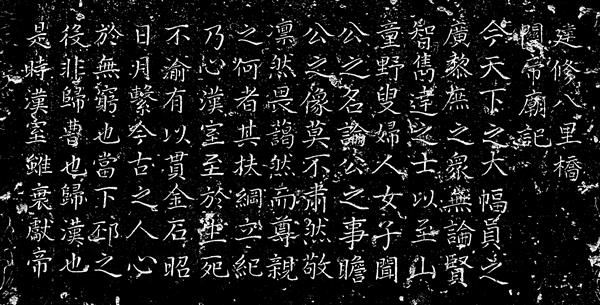 建修八里橋
關帝廟記
今天下之大幅員之
廣黎庶之眾無論賢
智雋達之士以至山
童野叟婦人女子聞
公之名論公之事瞻
公之像莫不肅然敬
凛然畏藹然而尊親
之何者其扶綱立紀
乃心漢室至於生死
不渝有以貫金石昭
日月繫今古之人心
於無窮也當下邳之
後非歸曹也歸漢也
是時漢室雖衰獻帝